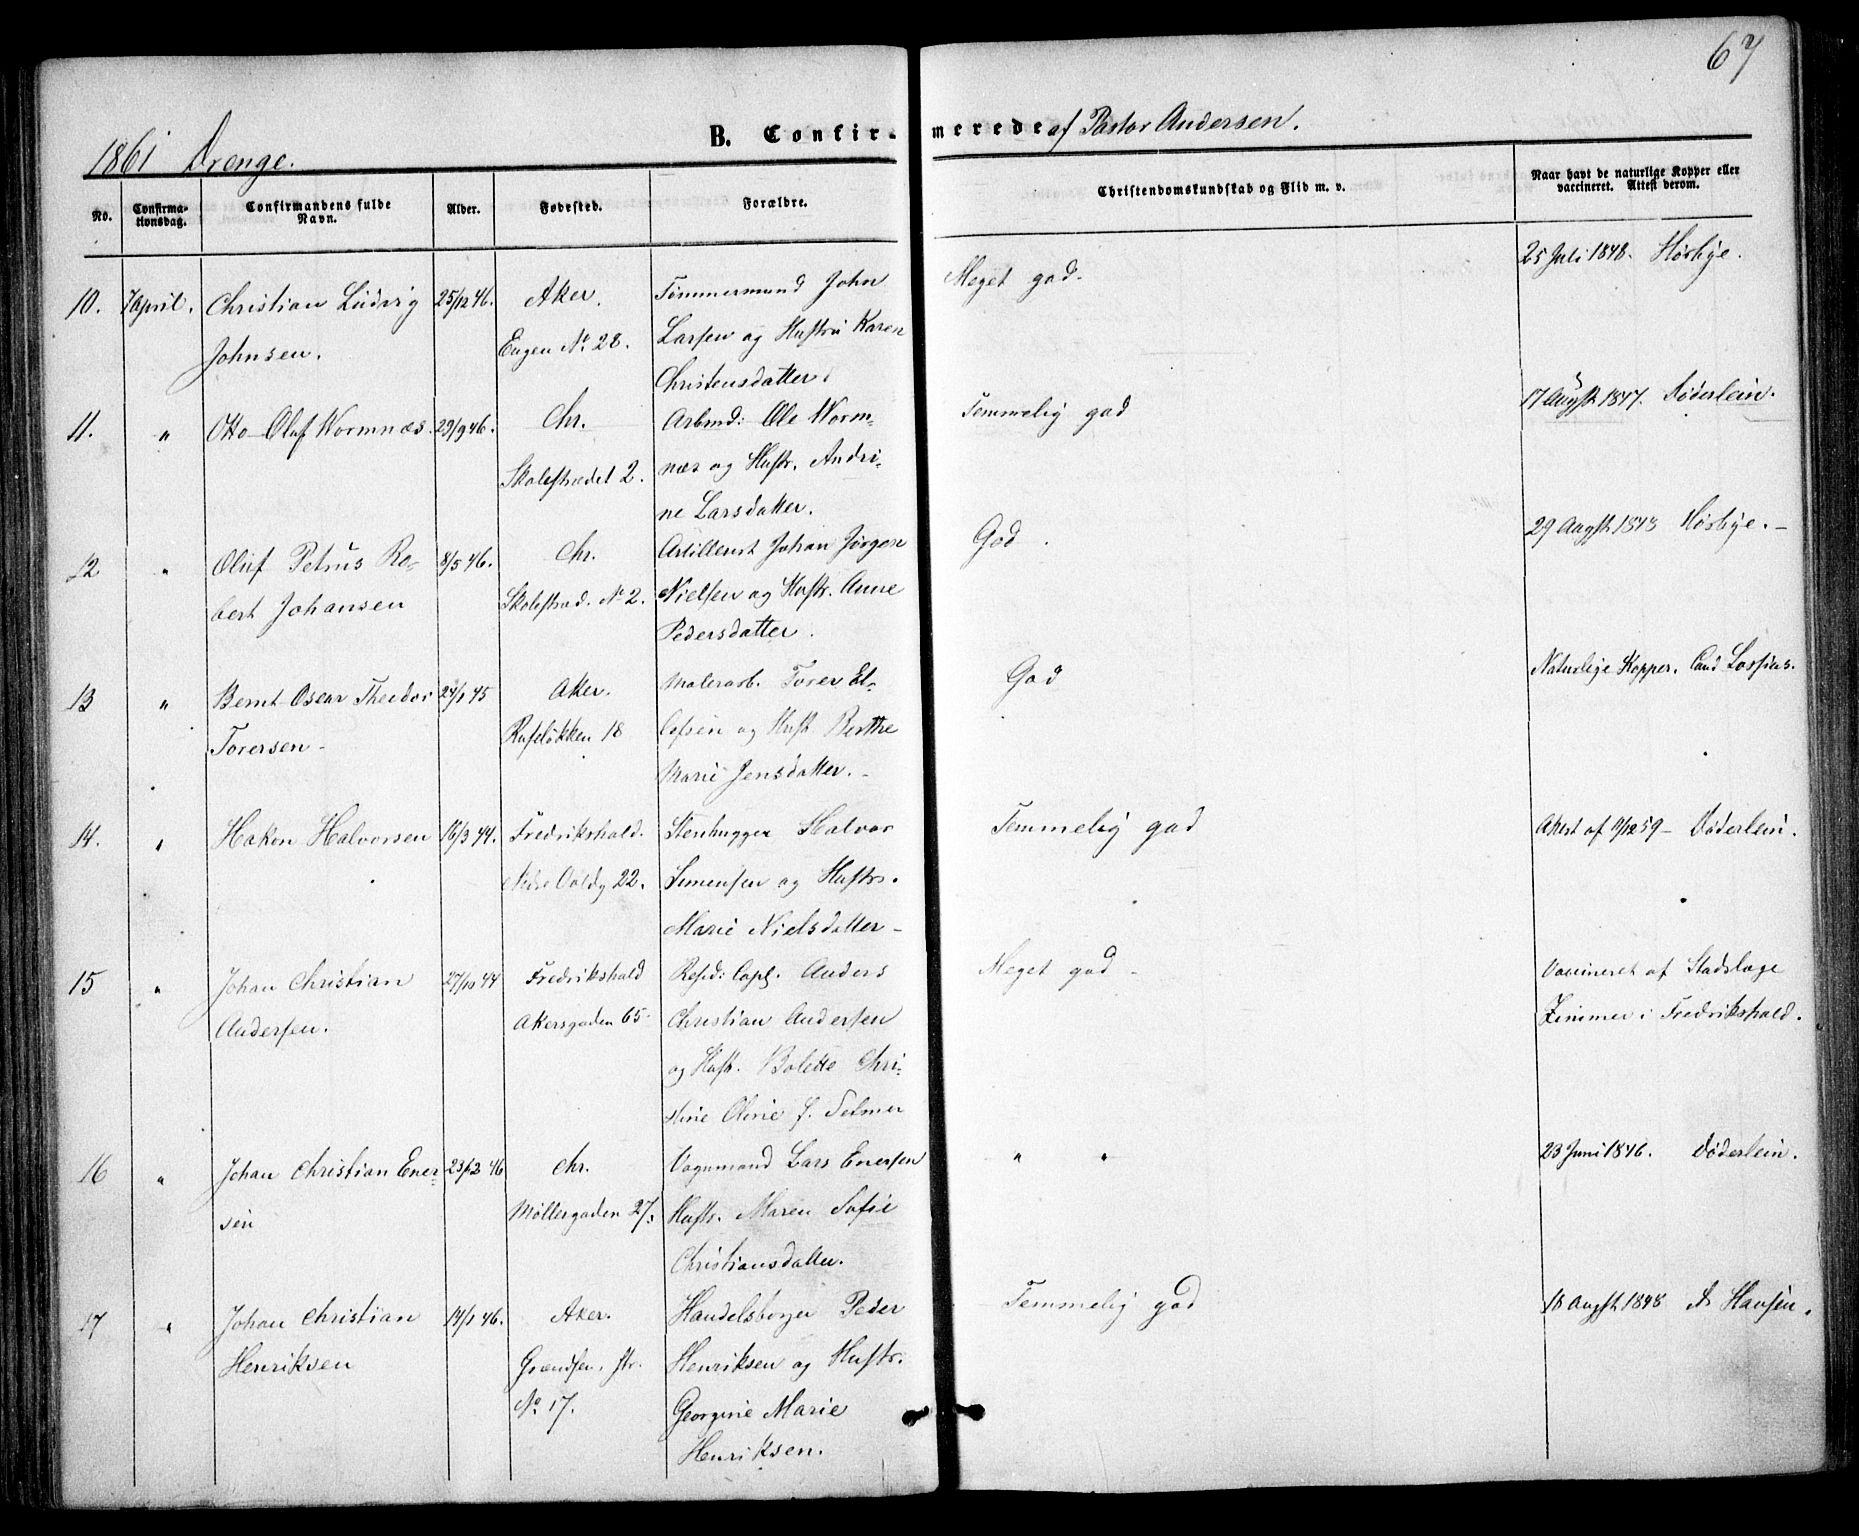 67
B. Confir- merede af Pastor Andersen.
1861 Drenge.
No.
Confirma-
tionsdag.
Confirmandens fulde
Navn.
Alder.
Fødested.
Forældre.
Christendomskundskab og Flid m. v.
Naar havt de naturlige Kopper eller
vaccineret. Attest derom.
10. 7 April. Christian Ludvig 25/12 46. Aker. Tømmermand John Meget god. 25 Juli 1848. Hørbye.
Johnsen. Engen No. 28. Larsen og Hustru Karen
Christensdatter.
11. " Otto Olaf Wormnæs. 29/9 46. Chr. Arbmd: Ole Worm- Temmelig god 17 Augst 1847. Døderlein.
Skolestrædet 2. næs og Hustr. Andri-
ne Larsdatter.
12 " Oluf Petrus Ro- 8/5 46. Chr. Artillerist Johan Jørgen God. 29 Augst 1843 Hørbye. -
bert Johansen Skolestræd. No 2. Nielsen og Hustr. Anne
Pedersdatter.
13 " Bernt Oscar Theodor 24/1 45 Aker. Malerarb. Torer El- God Naturlige Kopper. Cand
Torersen - Ruseløkken 18 lefsen og Hust Berthe
Marie Jensdatter. -
14. " Hakon Halvorsen 16/3 44. Fredrikshald. Stenhugger Halvor Temmelig god Attest af 9/12 59 - Døderlein.
Nedre Voldg 22. Simensen og Hustr.
Marie Nielsdatter -
15 " Johan Christian 27/10 44 Fredrikshald Resid: Capl. Anders Meget god - Vaccineret af Stadslæge
Andersen. Akersgaden 65 - Christian Andersen Zimmer i Fredrikshald.
og Hust. Bolette Chri-
stine Oline f. Selmer
16 " Johan Christian Ener- 23/2 46 Chr. Vognmand Lars Enersen " " 23 Juni 1846. Døderlein.
sen Møllergaden 27. Hustr. Maren Sofie
Christiansdatter.
17 " Johan Christian 14/1 46. Aker. Handelsborger Peder Temmelig god 18 Augst 1848 A. Hansen.
Henriksen Grændsen, str. Henriksen og Hustr.
No 17. Georgine Marie
Henriksen.